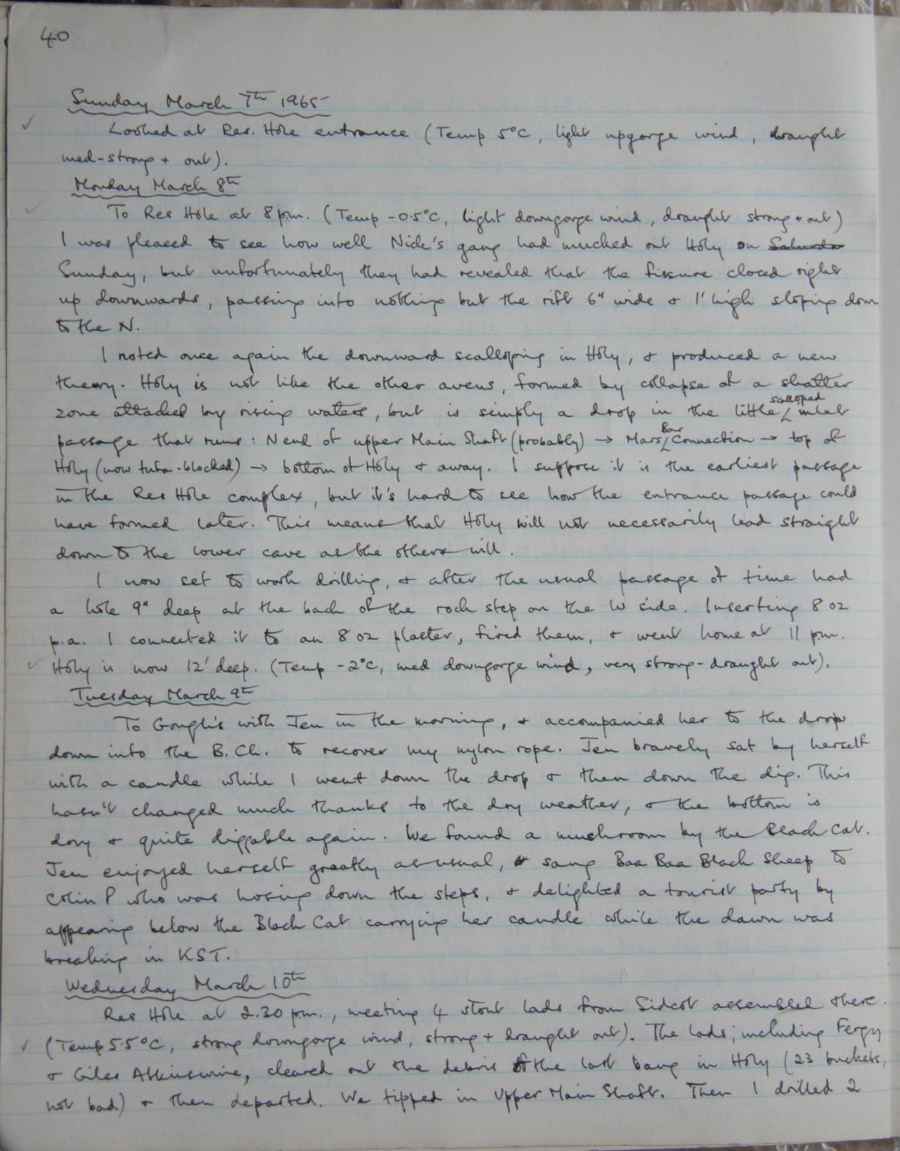 40
Sunday March 7th 1965
Looked at Res. Hole entrance (Temp 5°C, light upgorge wind, draught
med-strong + out).
Monday March 8th
To Res Hole at 8 pm. (Temp -0.5°C, light downgorge wind, draught strong + out)
I was pleased to see how well Nick's gang had mucked out Holy on Saturda
Sunday, but unfortunately they had revealed that the fissure closed right
up downwards, passing into nothing but the rift 6" wide + 1' high sloping down
to the N.
I noted once again the downward scalloping in Holy, + produced a new
theory. Holy is not like the other avens, formed by collapse of a shatter
zone attacked by rising waters, but is simply a drop in the little scalloped inlet
passage that runs: N end of upper Main Shaft (probably) → Mars Bar Connection → top of
Holy (now tufa-blocked) → bottom of Holy + away. I suppose it is the earliest passage
in the Res Hole complex, but it's hard to see how the entrance passage could
have formed later. This means that Holy will not necessarily lead straight
down to the lower cave as the others will.
I now set to work drilling, + after the usual passage of time had
a hole 9" deep at the back of the rock step on the W side. Inserting 8 oz
p.a. I connected it to an 8 oz plaster, fired them, + went home at 11 pm.
Holy is now 12' deep. (Temp -2°C, med downgorge wind, very strong-draught out).
Tuesday March 9th
To Gough's with Jen in the morning, + accompanied her to the drop
down into the B.Ch. to recover my nylon rope. Jen bravely sat by herself
with a candle while I went down the drop + then down the dig. This
hasn't changed much thanks to the dry weather, + the bottom is
dry + quite diggable again. We found a mushroom by the Black Cat.
Jen enjoyed herself greatly as usual, + sang Baa Baa Black Sheep to
Colin P who was hosing down the steps, + delighted a tourist party by
appearing below the Black Cat carrying her candle while the dawn was
breaking in KST.
Wednesday March 10th
Res Hole at 2.30 pm., meeting 4 stout lads from Sidcot assembled there.
(Temp 5.5°C, strong downgorge wind, strong + draught out). The lads, including Fergy
+ Giles Atkinswine, cleared out the debris of the last bang in Holy (23 buckets,
not bad) + then departed. We tipped in Upper Main Shaft. Then I drilled 2